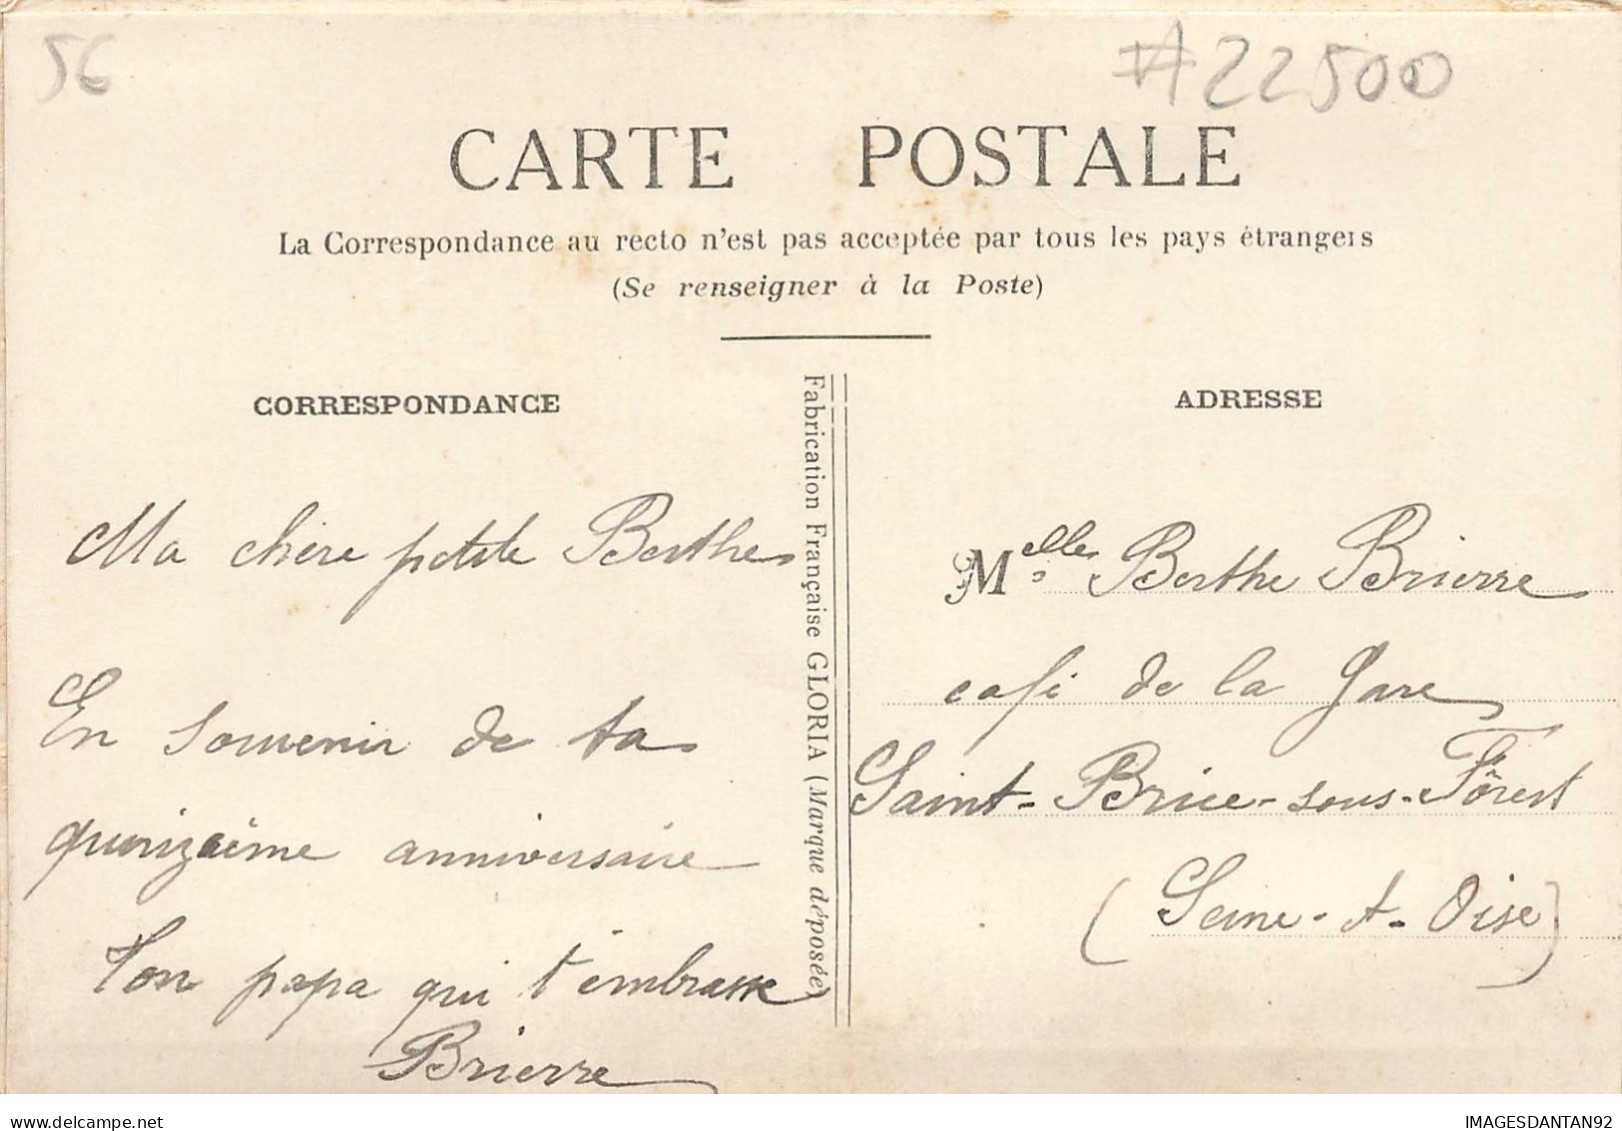 56
#22500
CARTE POSTALE
La Correspondance au recto n'est pas acceptée par tous les pays étrangers
(Se renseigner à la Poste)
CORRESPONDANCE
Ma chère petite Berthe
En souvenir de ta
quinzaième anniversaire
Ton papa qui t'embrasse
Brierre
Fabrication Française GLORIA (Marque déposée)
ADRESSE
Melle Berthe Brierre
café de la Gare
Saint-Brice-sous-Fôrest
(Seine-et-Oise)
delcampe.net
IMAGESDANTAN92